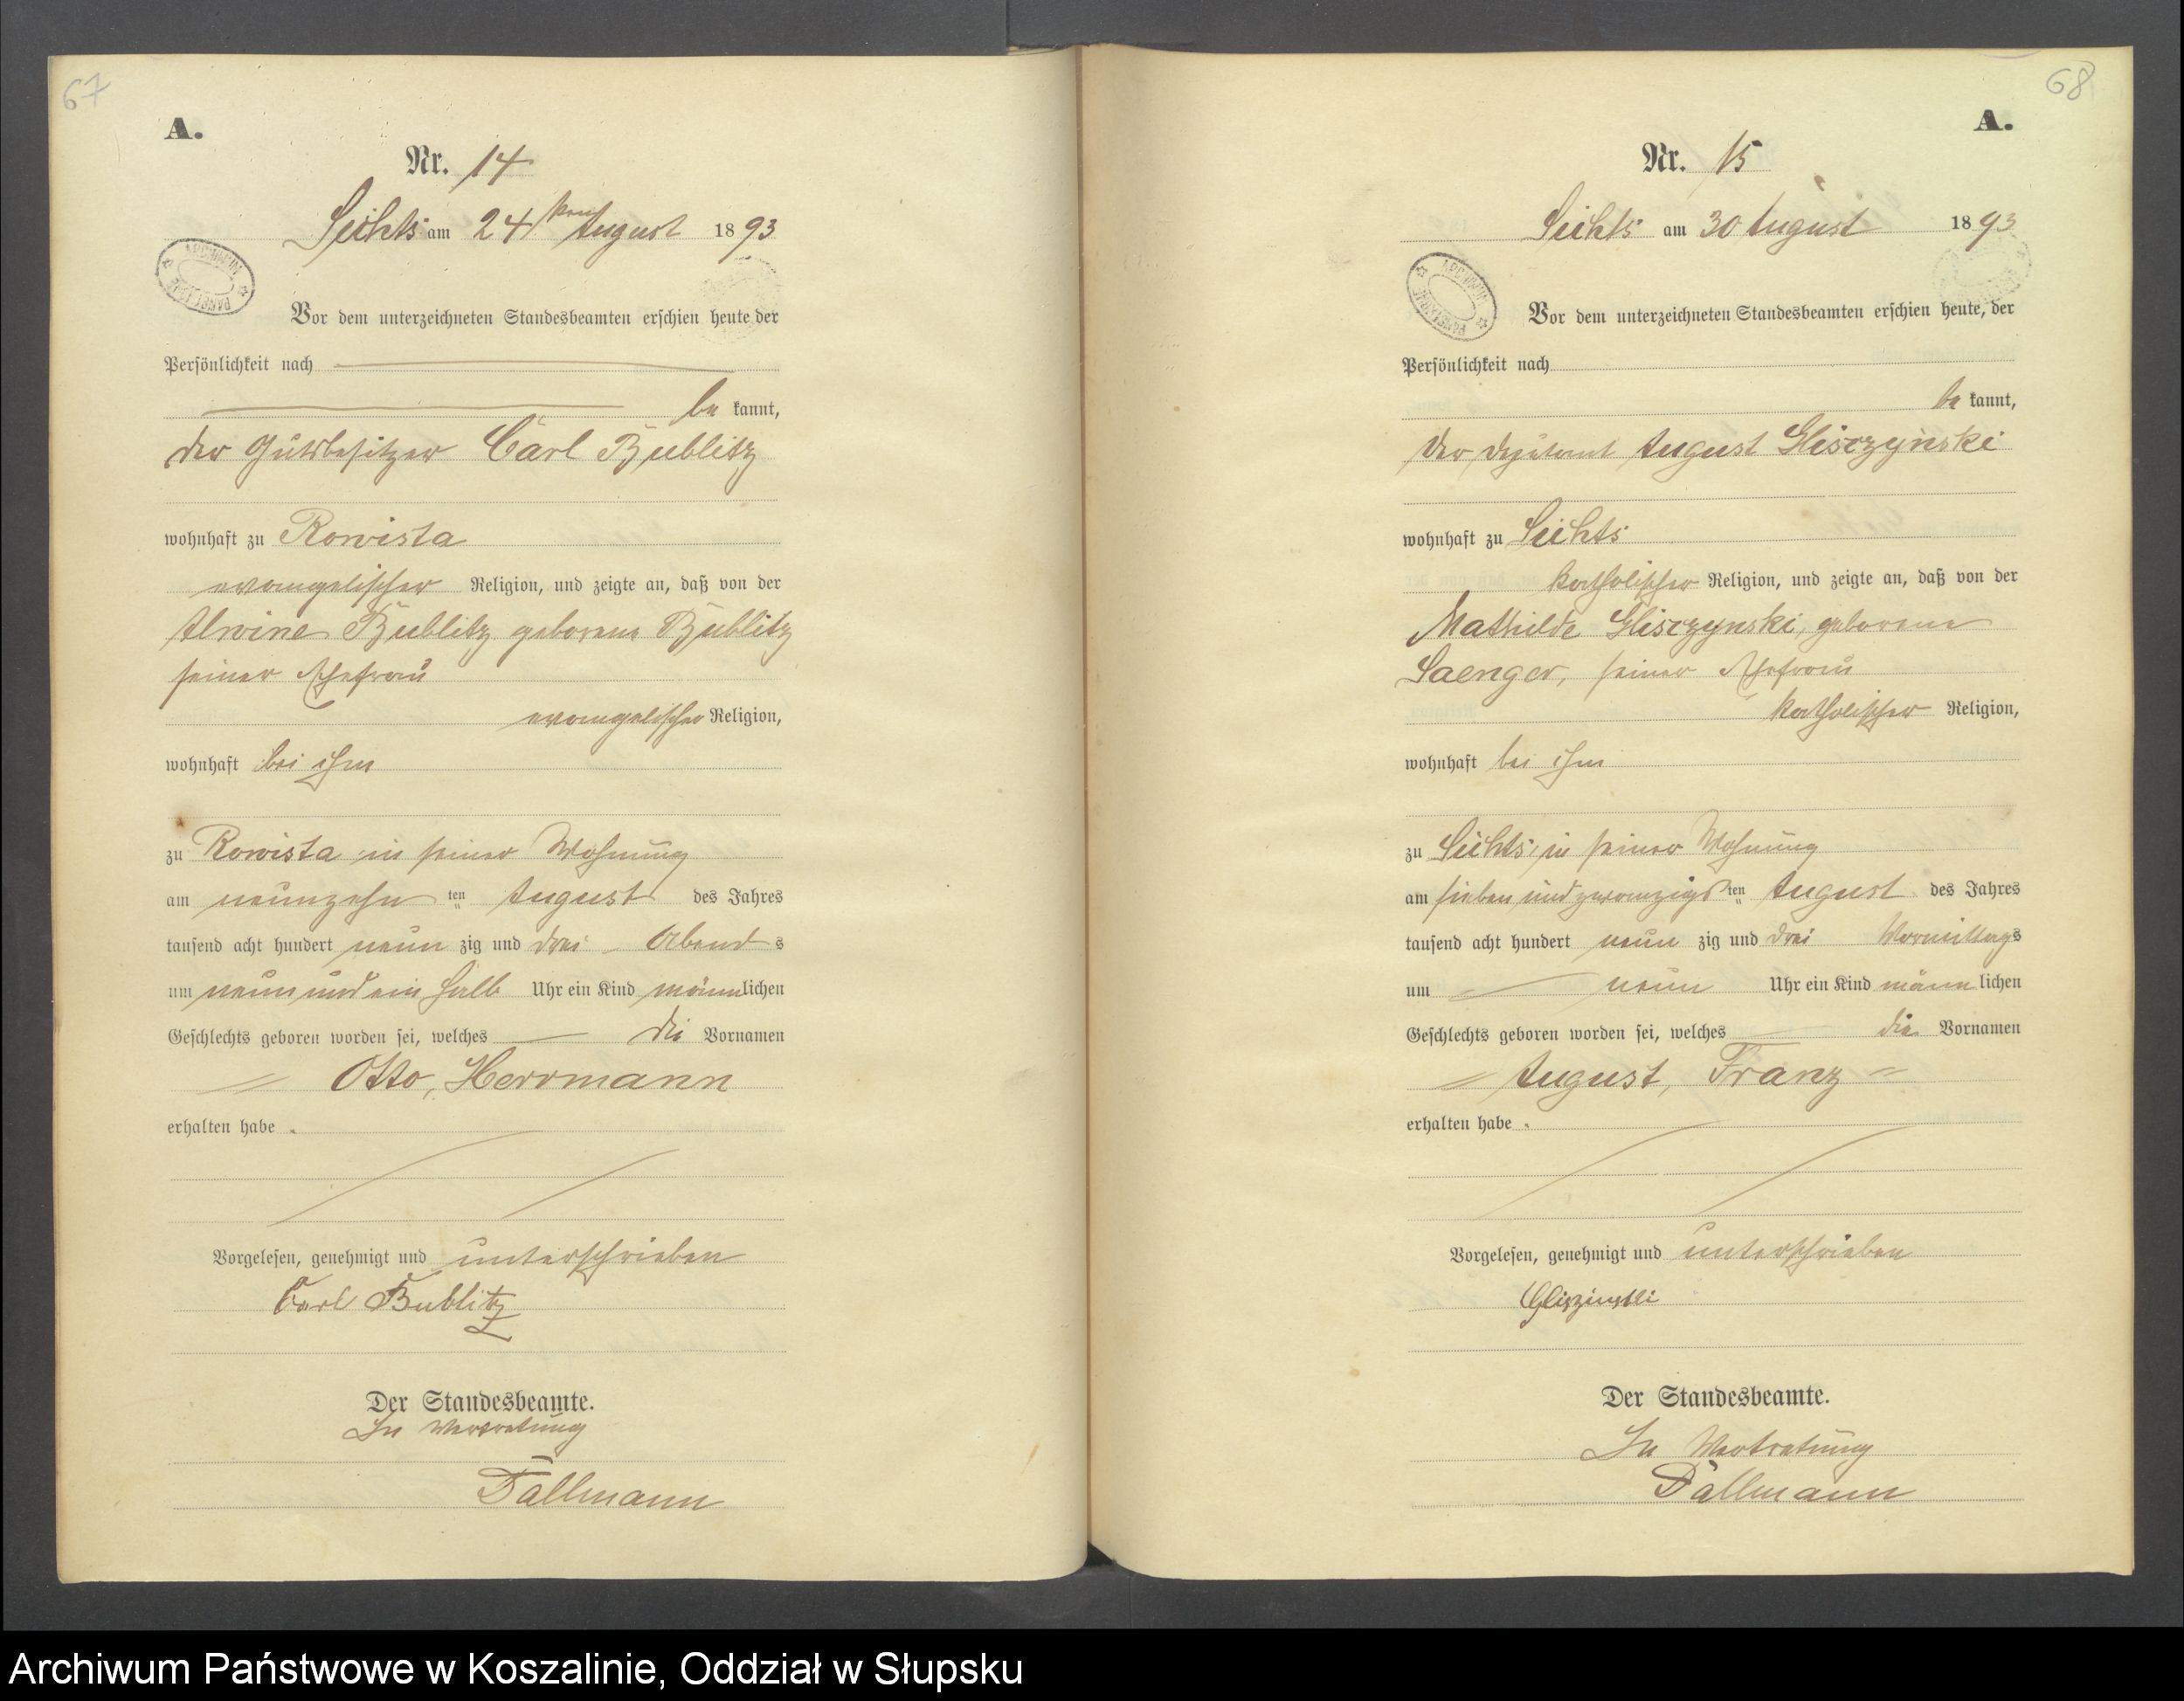 67
A.
Nr. 14
Seehts am 24ten August 1893
ARCHIWUM PAŃSTWOWE
Vor dem unterzeichneten Standesbeamten erschien heute, der
Persönlichkeit nach
be kannt,
der Gutsbesitzer Carl Bublitz
wohnhaft zu Rowista
evangelischer Religion, und zeigte an, daß von der
Alwine Bublitz geborene Bublitz
seiner Ehefrau
evangelischer Religion,
wohnhaft bei ihm
zu Rowista in seiner Wohnung
am neunzehn ten August des Jahres
tausend acht hundert neun zig und drei Abend s
um neun und ein halb Uhr ein Kind männlichen
Geschlechts geboren worden sei, welches die Vornamen
Otto, Herrmann
erhalten habe.
Vorgelesen, genehmigt und unterschrieben
Carl Bublitz
Der Standesbeamte.
In Vertretung
Fallmann
68
A.
Nr. 15
Seehts am 30 August 1893
ARCHIWUM PAŃSTWOWE
Vor dem unterzeichneten Standesbeamten erschien heute, der
Persönlichkeit nach
be kannt,
der Deputant August Glisczynski
wohnhaft zu Seehts
katholischer Religion, und zeigte an, daß von der
Mathilde Glisczynski, geborene
Saenger, seiner Ehefrau
katholischer Religion,
wohnhaft bei ihm
zu Seehts, in seiner Wohnung
am sieben und zwanzigs ten August des Jahres
tausend acht hundert neun zig und drei Vormittags
um neun Uhr ein Kind männ lichen
Geschlechts geboren worden sei, welches die Vornamen
August, Franz
erhalten habe.
Vorgelesen, genehmigt und unterschrieben
Gliszinski
Der Standesbeamte.
In Vertretung
Fallmann
Archiwum Państwowe w Koszalinie, Oddział w Słupsku